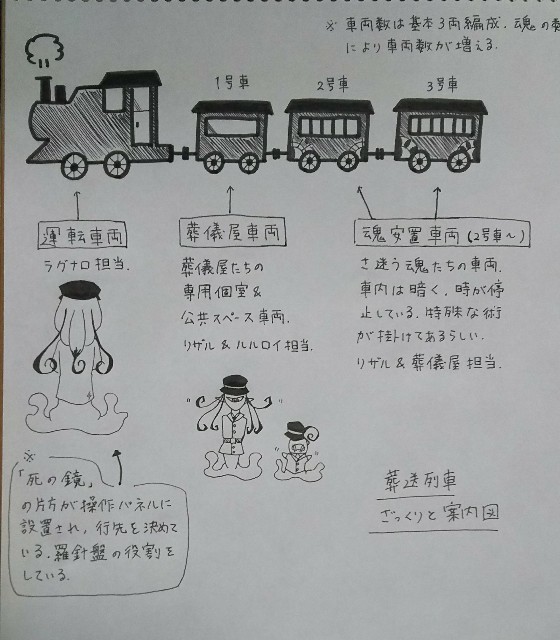 ※ 車両数は基本3両編成. 魂の
により車両数が増える.
1号車
2号車
3号車
運転車両
ラグナロ担当.
葬儀屋車両
葬儀屋たちの
専用個室&
公共スペース車両.
リザル&ルルロイ担当.
魂安置車両(2号車~)
さ迷う魂たちの車両.
車内は暗く、時が停
止している. 特殊な術
が掛けてあるらしい.
リザル&葬儀屋担当.
※
「死の鏡」
の片方が操作パネルに
設置され, 行先を決めて
いる. 羅針盤の役割を
している.
葬送列車
ざっくりと案内図